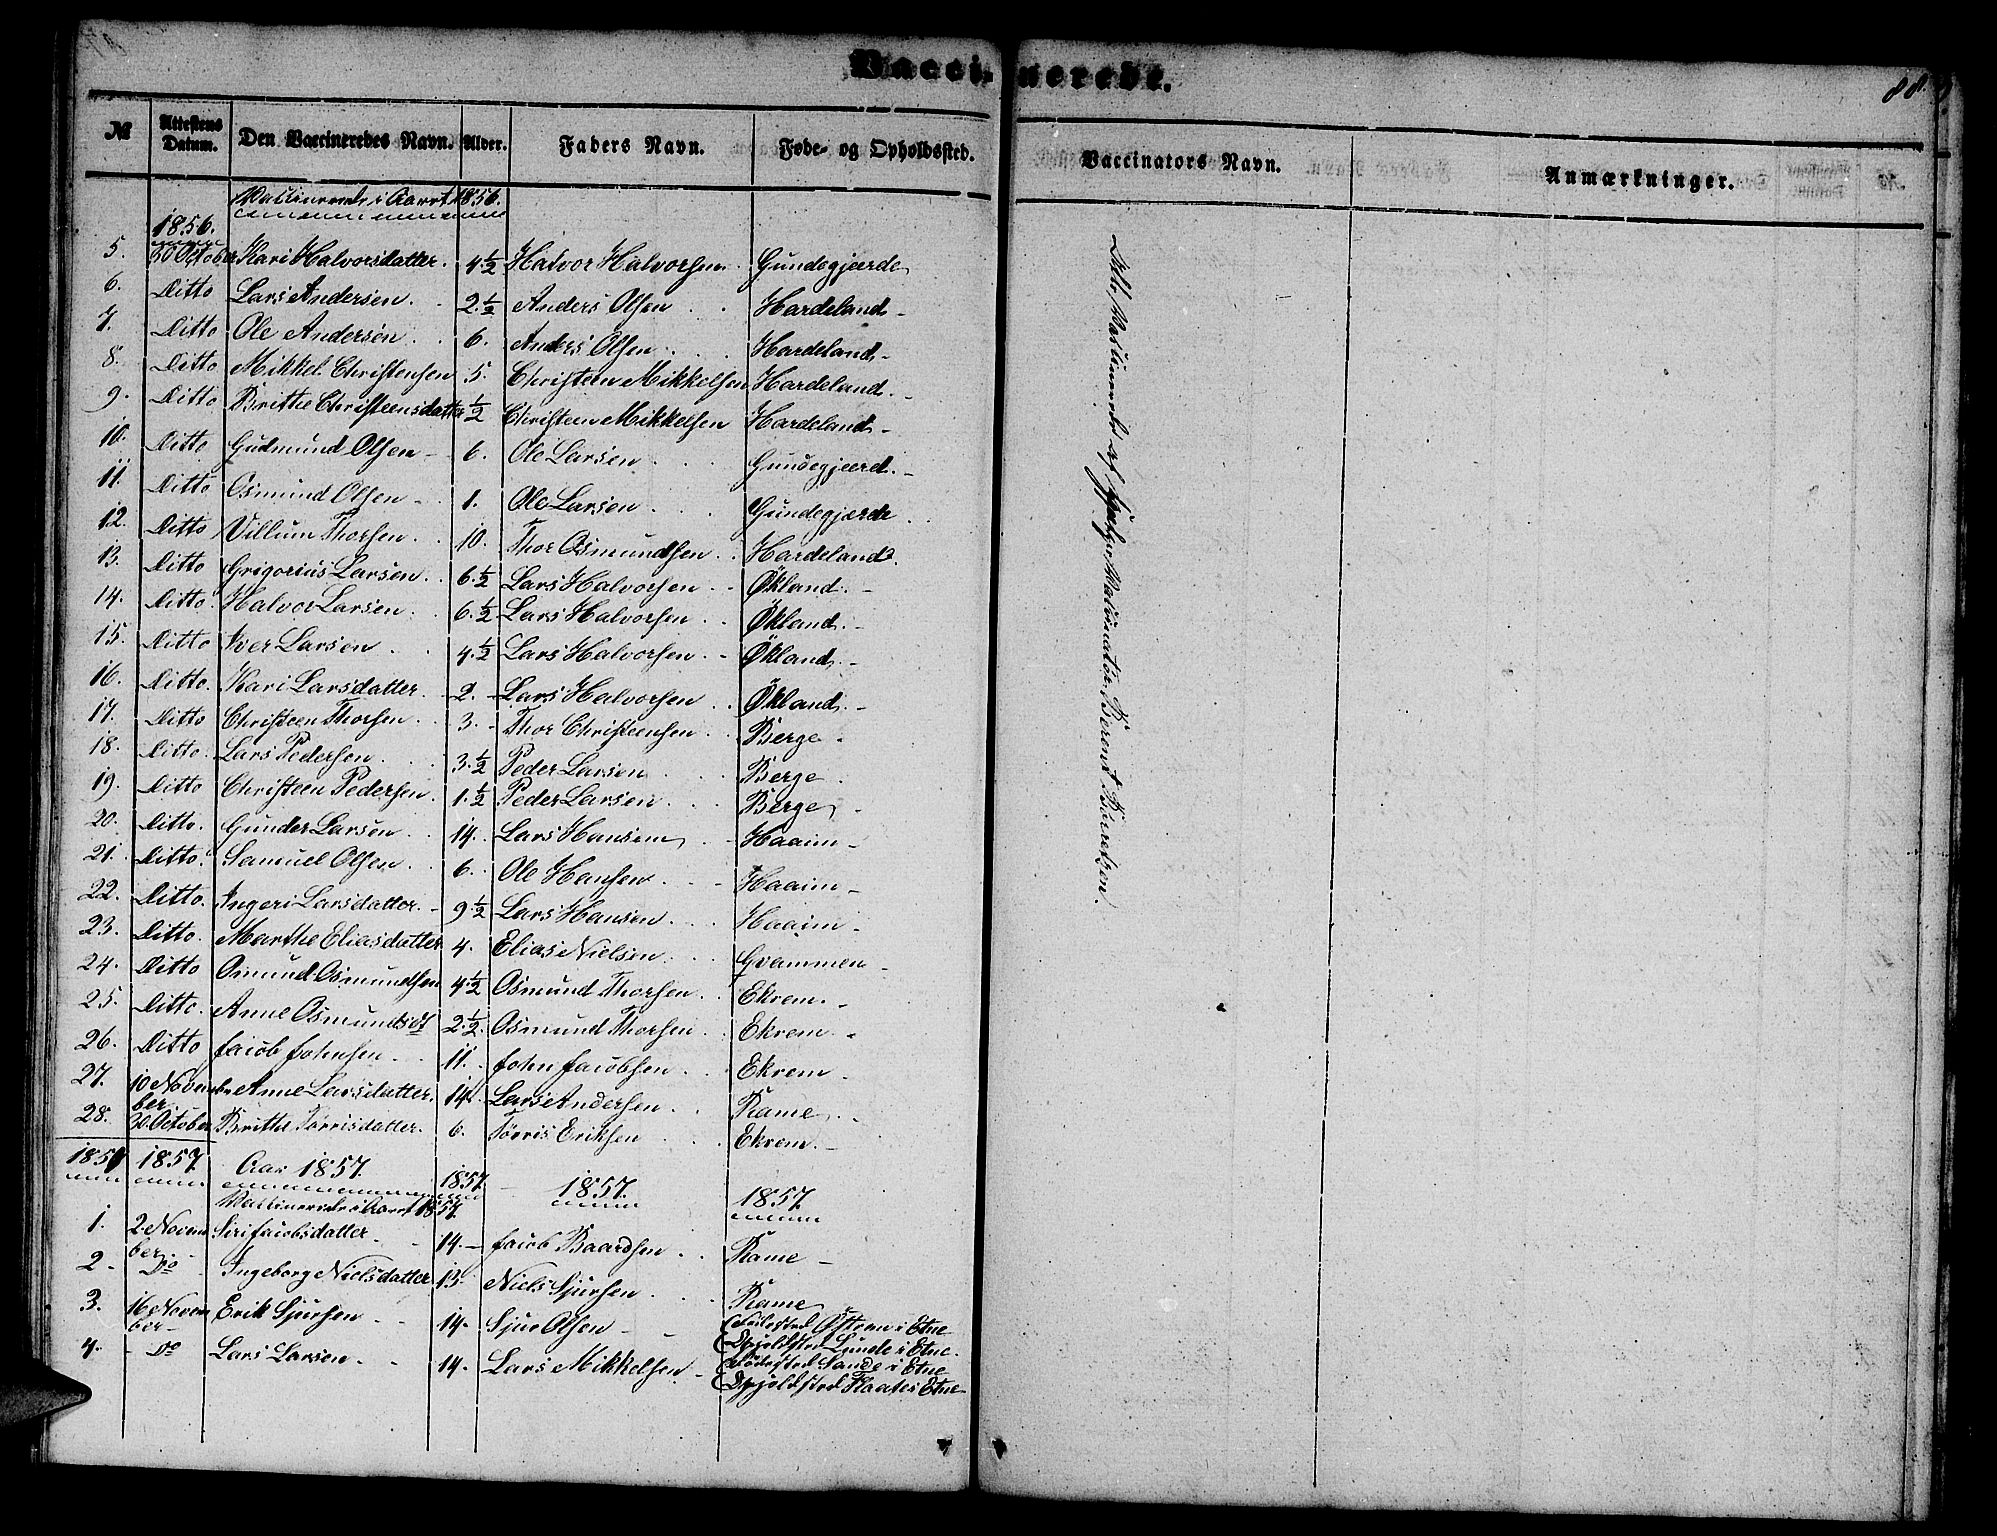 Vaccinerede.
88.
№ Attestens Datum. Den Vaccineredes Navn. Alder. Faders Navn. Føde- og Opholdssted. Vaccinators Navn. Anmærkninger.
Vaccinerede i Aaret 1856.
1856.
5. 30 October Kari Halvorsdatter. 4 1/2 Halvor Halvorsen. Gundegjerde
6. Ditto Lars Andersen. 2. 1/2 Anders Olsen Hardeland -
7. Ditto Ole Andersen 6. Anders Olsen Hardeland -
8. Ditto Mikkel Christensen 5. Christeen Mikkelsen Hardeland. -
9. Ditto Brithe Christeensdatter 1/2 Christeen Mikkelsen Hardeland -
10. Ditto Gudmund Olsen - 6. Ole Larsen Gundegjeerd. -
11. Ditto Osmund Olsen - 1. Ole Larsen Gundegjerde
12. Ditto Villum Thorsen. 10. Thor Osmundsen Hardeland.
13. Ditto Grigorius Larsen. 6. 1/2 Lars Halvorsen Økland. -
14. Ditto. Halvor Larsen 6. 1/2 Lars Halvorsen Økland. -
15. Ditto Iver Larsen 4. 1/2 Lars Halvorsen - Økland. -
16. Ditto. Kari Larsdatter 2. - Lars Halvorsen Økland. -
17. Ditto Christeen Thorsen 3. - Thor Christeensen Berge -
18. Ditto. Lars Pedersen 3. 1/2 Peder Larsen Berge
19. Ditto Christeen Pedersen. 1. 1/2 Peder Larsen Berge -
20. Ditto. Gunder Larsen 14. Lars Hansen - Haaim -
21. Ditto. Samuel Olsen 6. Ole Hansen - Haaim -
22. Ditto. Ingeri Larsdatter. - 9 1/2 Lars Hansen Haaim -
23. Ditto. Marthe Eliasdatter 4. Elias Nielsen Gvammen -
24. Ditto Osmund Osmundsen 4. 1/2 Osmund Thorsen Ekrem. -
25. Ditto. Anne Osmundsdt 2. 1/2. Osmund Thorsen Ekrem -
26. Ditto Jacob Johnsen 11. John Jacobsen Ekrem -
27. 10 Novem Anne Larsdatter. 14. Lars Andersen Rame -
ber
28. 30 October Brithe Tørrisdatter. 6. Tørris Eriksen Ekrem. -
1857 1857. Aar 1857. 1857. 1857. 1857.
Vaccinerede i Aaret 1857.
1. 2 Novem Siri Jacobsdatter - 14. - Jacob Baardsen Rame -
ber. -
2 - Do Ingeborg Nielsdatter 13. Niels Sjursen Rame
3. 16 Novem Erik Sjursen 14. Sjur Olsen - (Fødested Østrem i Etne
ber - (Opholdsted Lunde i Etne.
4. - Do Lars Larsen. 14. Lars Mikkelsen - (Fødested Sande i Etne
(Opholdsted Flaate i Etne
Vaccinator Berent Berentsen.